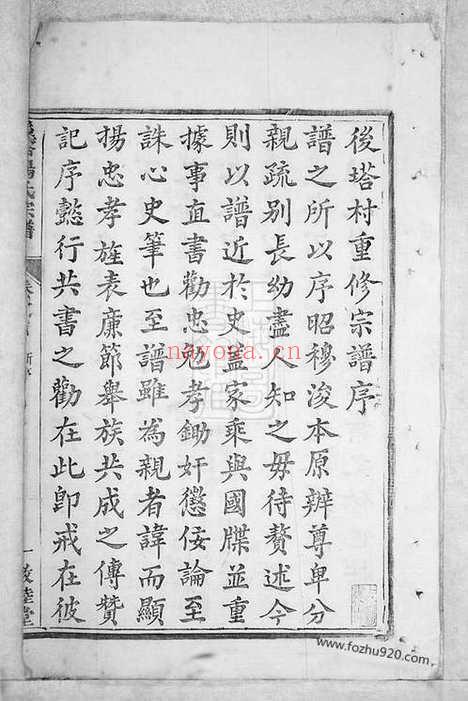 後塔村重修宗譜序
譜之所以序昭穆浚本原辦尊卑分
親疏别長幼盡人知之毋待贅述今
則以譜近於史盖家乘與國牒並重
據事直書勸忠勉孝鋤奸懲佞論至
誅心史筆也至譜雖為親者諱而顯
揚忠孝旌表廉節舉族共成之傳贊
記序懿行共書之勸在此卽戒在彼
氏宗譜
一
睦堂
nayona.cn
www.fozhu920.com